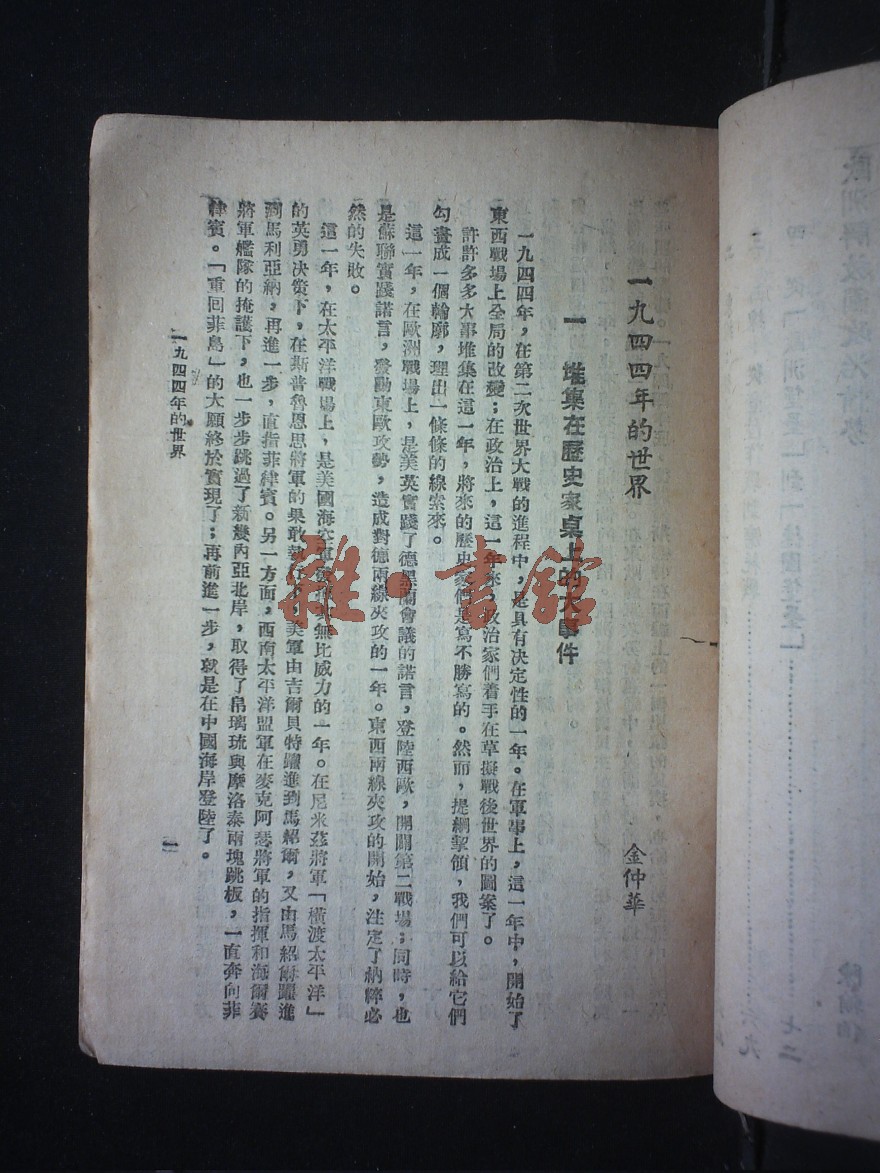 一九四四年的世界
金仲華
一 堆集在歷史家桌上的大事件
一九四四年，在第二次世界大戰的進程中，是具有决定性的一年。在軍事上，這一年中，開始了
東西戰場上全局的改變；在政治上，這一年來，政治家們着手在草擬戰後世界的圖案了。
許許多多大事堆集在這一年，將來的歷史家們是寫不勝寫的。然而，提綱挈領，我們可以給它們
勾畫成一個輪廓，理出一條條的線索來。
這一年，在歐洲戰場上，是美英實踐了德黑蘭會議的諾言，登陸西歐，開闢第二戰場；同時，也
是蘇聯實踐諾言，發動東歐攻勢，造成對德兩線夾攻的一年。東西兩線夾攻的開始，注定了納粹必
然的失敗。
這一年，在太平洋戰場上，是美國海空軍發揮其無比威力的一年。在尼米茲將軍「橫渡太平洋」
的英勇决策下，在斯普魯恩思將軍的果敢執行下，美軍由吉爾貝特躍進到馬紹爾，又由馬紹爾躍進
到馬利亞納，再進一步，直指菲律賓。另一方面，西南太平洋盟軍在麥克阿瑟將軍的指揮和海爾賽
將軍艦隊的掩護下，也一步步跳過了新幾內亞北岸，取得了帛璃琉與摩洛泰兩塊跳板，一直奔向菲
律賓。「重回菲島」的大願終於實現了；再前進一步，就是在中國海岸登陸了。
一九四四年的世界
一
雜·書館